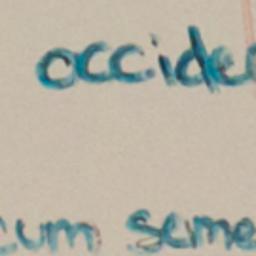 occider
cum seme